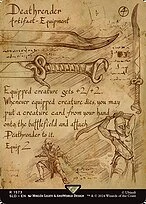 Deathrender
Artifact - Equipment
Equipped creature gets +2/+2.
Whenever equipped creature dies, you may
put a creature card from your hand
onto the battlefield and attach
Deathrender to it.
Equip 2
R 1573
SLD • EN
™ & © 2024 Wizards of the Coast
© Ubisoft